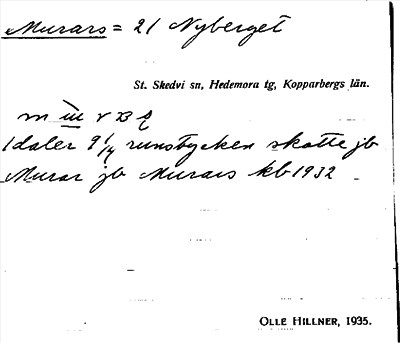 Murars = 21 Nyberget
St. Skedvi sn, Hedemora tg, Kopparbergs län.
m
1 daler 9 1/4 runstycken skatte jb
Murar jb Murars kb 1932
OLLE HILLNER, 1935.